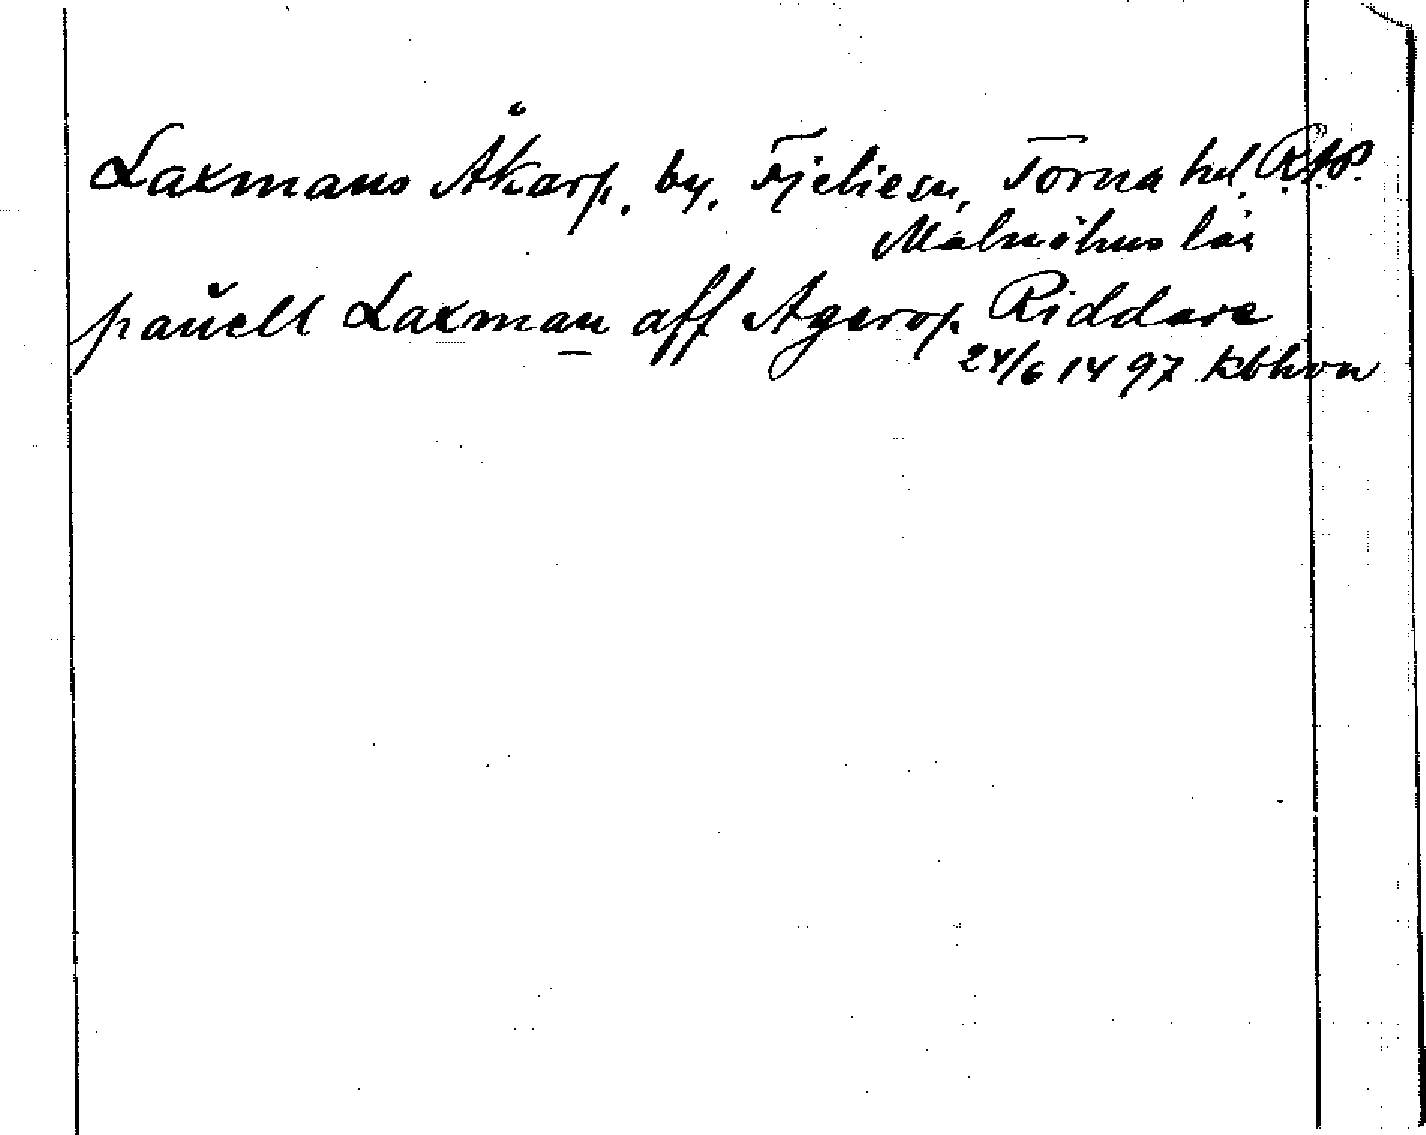 Laxmans Åkarp. by. Fjelie sn, Torna hd. R.A.P.
Malmöhus län
paŭell Laxman aff Agerop Riddare
24/6 1497 Kbhvn